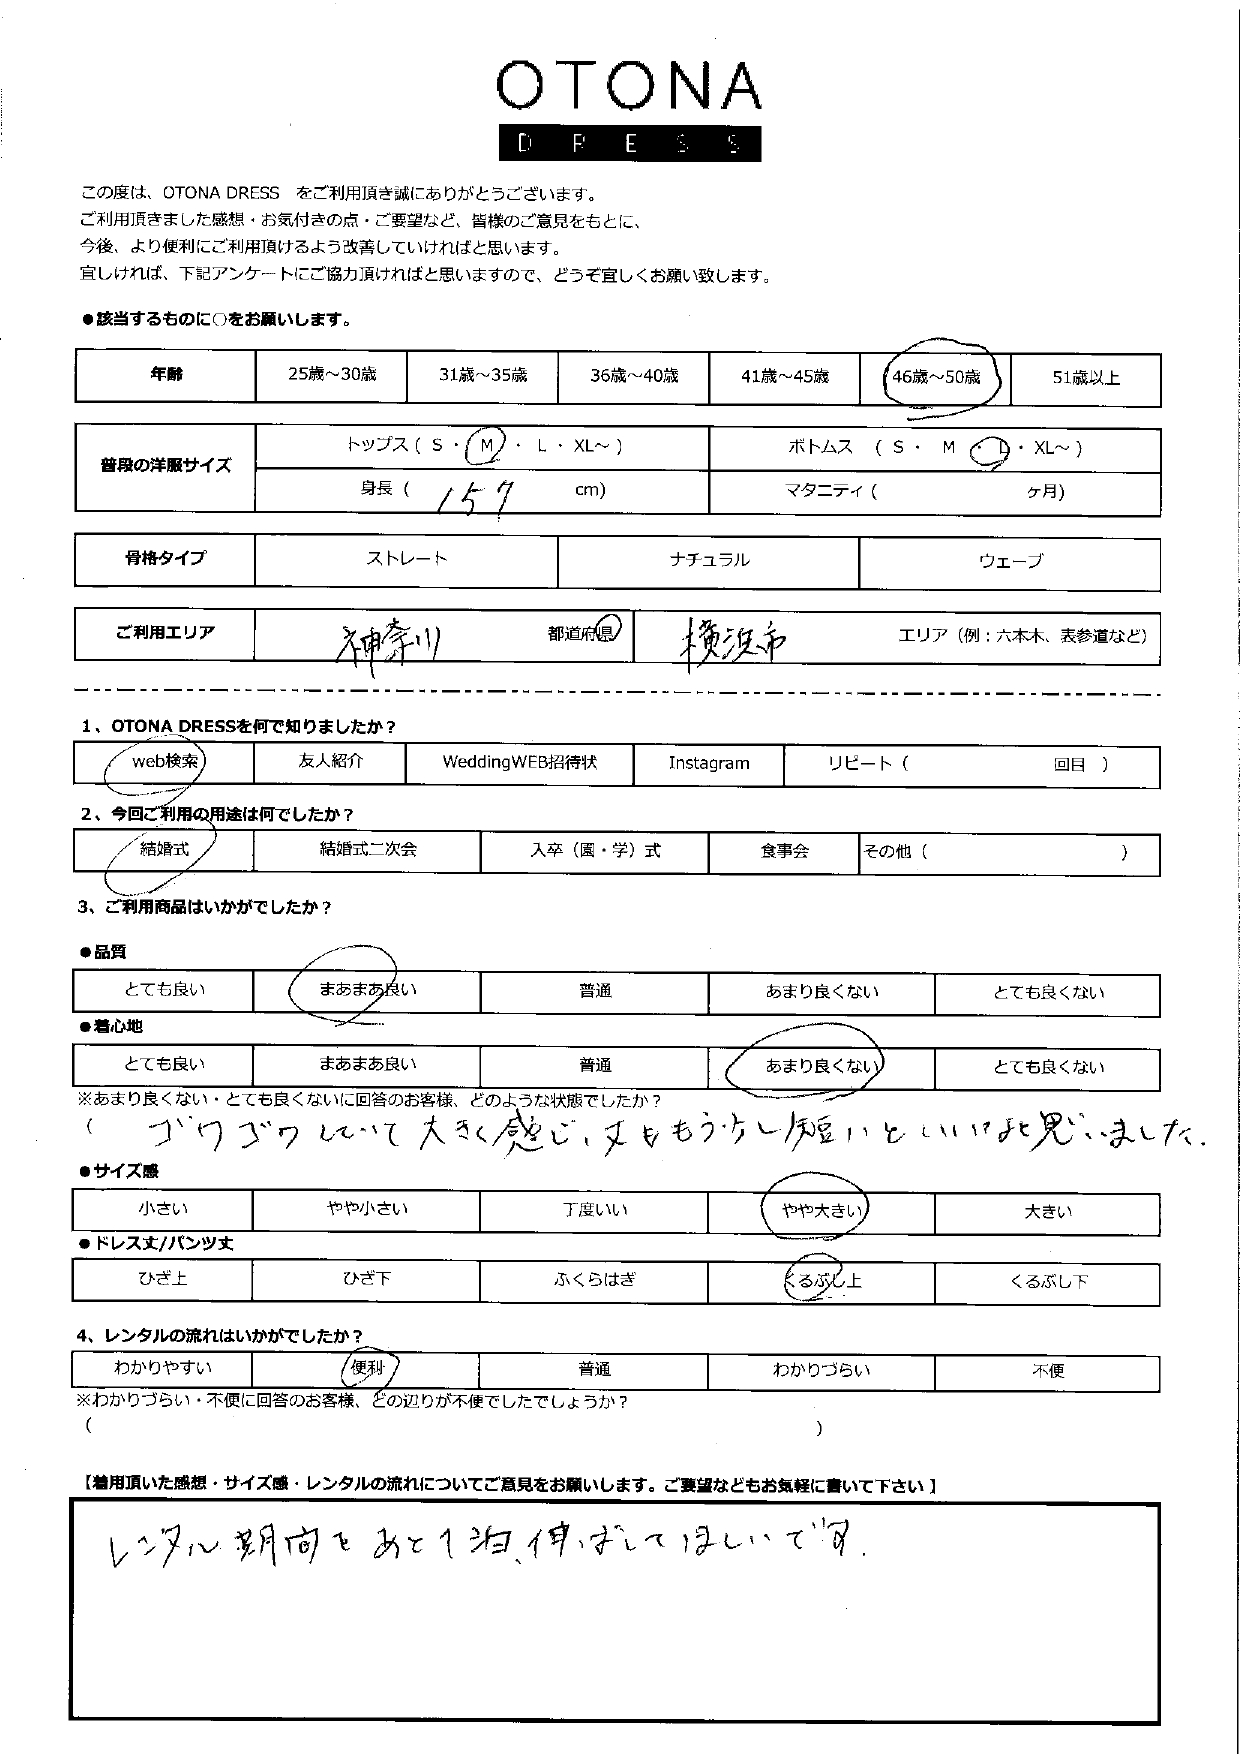 OTONA
DRESS
この度は、OTONA DRESS をご利用頂き誠にありがとうございます。
ご利用頂きました感想・お気付きの点・ご要望など、皆様のご意見をもとに、
今後、より便利にご利用頂けるよう改善していければと思います。
宜しければ、下記アンケートにご協力頂ければと思いますので、どうぞ宜しくお願い致します。
●該当するものに○をお願いします。
年齢 25歳～30歳 31歳～35歳 36歳～40歳 41歳～45歳 46歳～50歳 51歳以上
普段の洋服サイズ トップス ( S ・ M ・ L ・ XL～ ) ボトムス ( S ・ M ・ L ・ XL～ )
身長 ( 157 cm) マタニティ ( ヶ月)
骨格タイプ ストレート ナチュラル ウェーブ
ご利用エリア 神奈川 都道府県 横浜市 エリア（例：六本木、表参道など）
1、OTONA DRESSを何で知りましたか？
web検索 友人紹介 WeddingWEB招待状 Instagram リピート ( 回目 )
2、今回ご利用の用途は何でしたか？
結婚式 結婚式二次会 入卒（園・学）式 食事会 その他 ( )
3、ご利用商品はいかがでしたか？
●品質
とても良い まあまあ良い 普通 あまり良くない とても良くない
●着心地
とても良い まあまあ良い 普通 あまり良くない とても良くない
※あまり良くない・とても良くないに回答のお客様、どのような状態でしたか？
( ゴワゴワしていて大きく感じ、丈ももう少し短いといいなと思いました.
●サイズ感
小さい やや小さい 丁度いい やや大きい 大きい
●ドレス丈/パンツ丈
ひざ上 ひざ下 ふくらはぎ くるぶし上 くるぶし下
4、レンタルの流れはいかがでしたか？
わかりやすい 便利 普通 わかりづらい 不便
※わかりづらい・不便に回答のお客様、どの辺りが不便でしたでしょうか？
( )
【着用頂いた感想・サイズ感・レンタルの流れについてご意見をお願いします。ご要望などもお気軽に書いて下さい】
レンタル期間をあと1泊、伸ばしてほしいです.